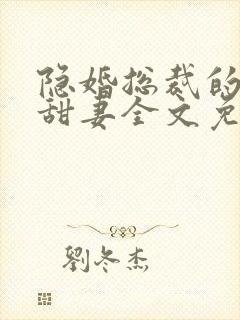 隐婚总裁的
甜妻全文免
劉冬杰